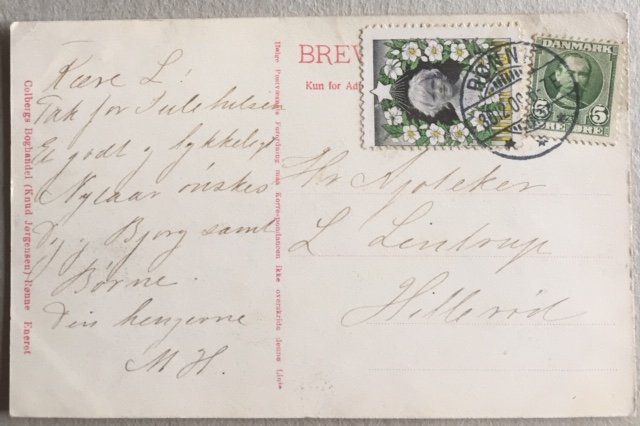 Kære L!
Tak for Julehilsen
Et godt og lykkeligt
Nytaar ønskes
Dig, Bjorg samt
Børne.
Din hengivne
M H.
BREV
Kun for Ad
Hr Apoteker
L Lintrup
Hillerød
DANMARK
5 5
ØRE
RØNNE
Ifølge Postvæsenets Forordning maa Korrespondancen ikke overskride denne Linie
Colbergs Boghandel (Knud Jørgensen) Rønne Eneret